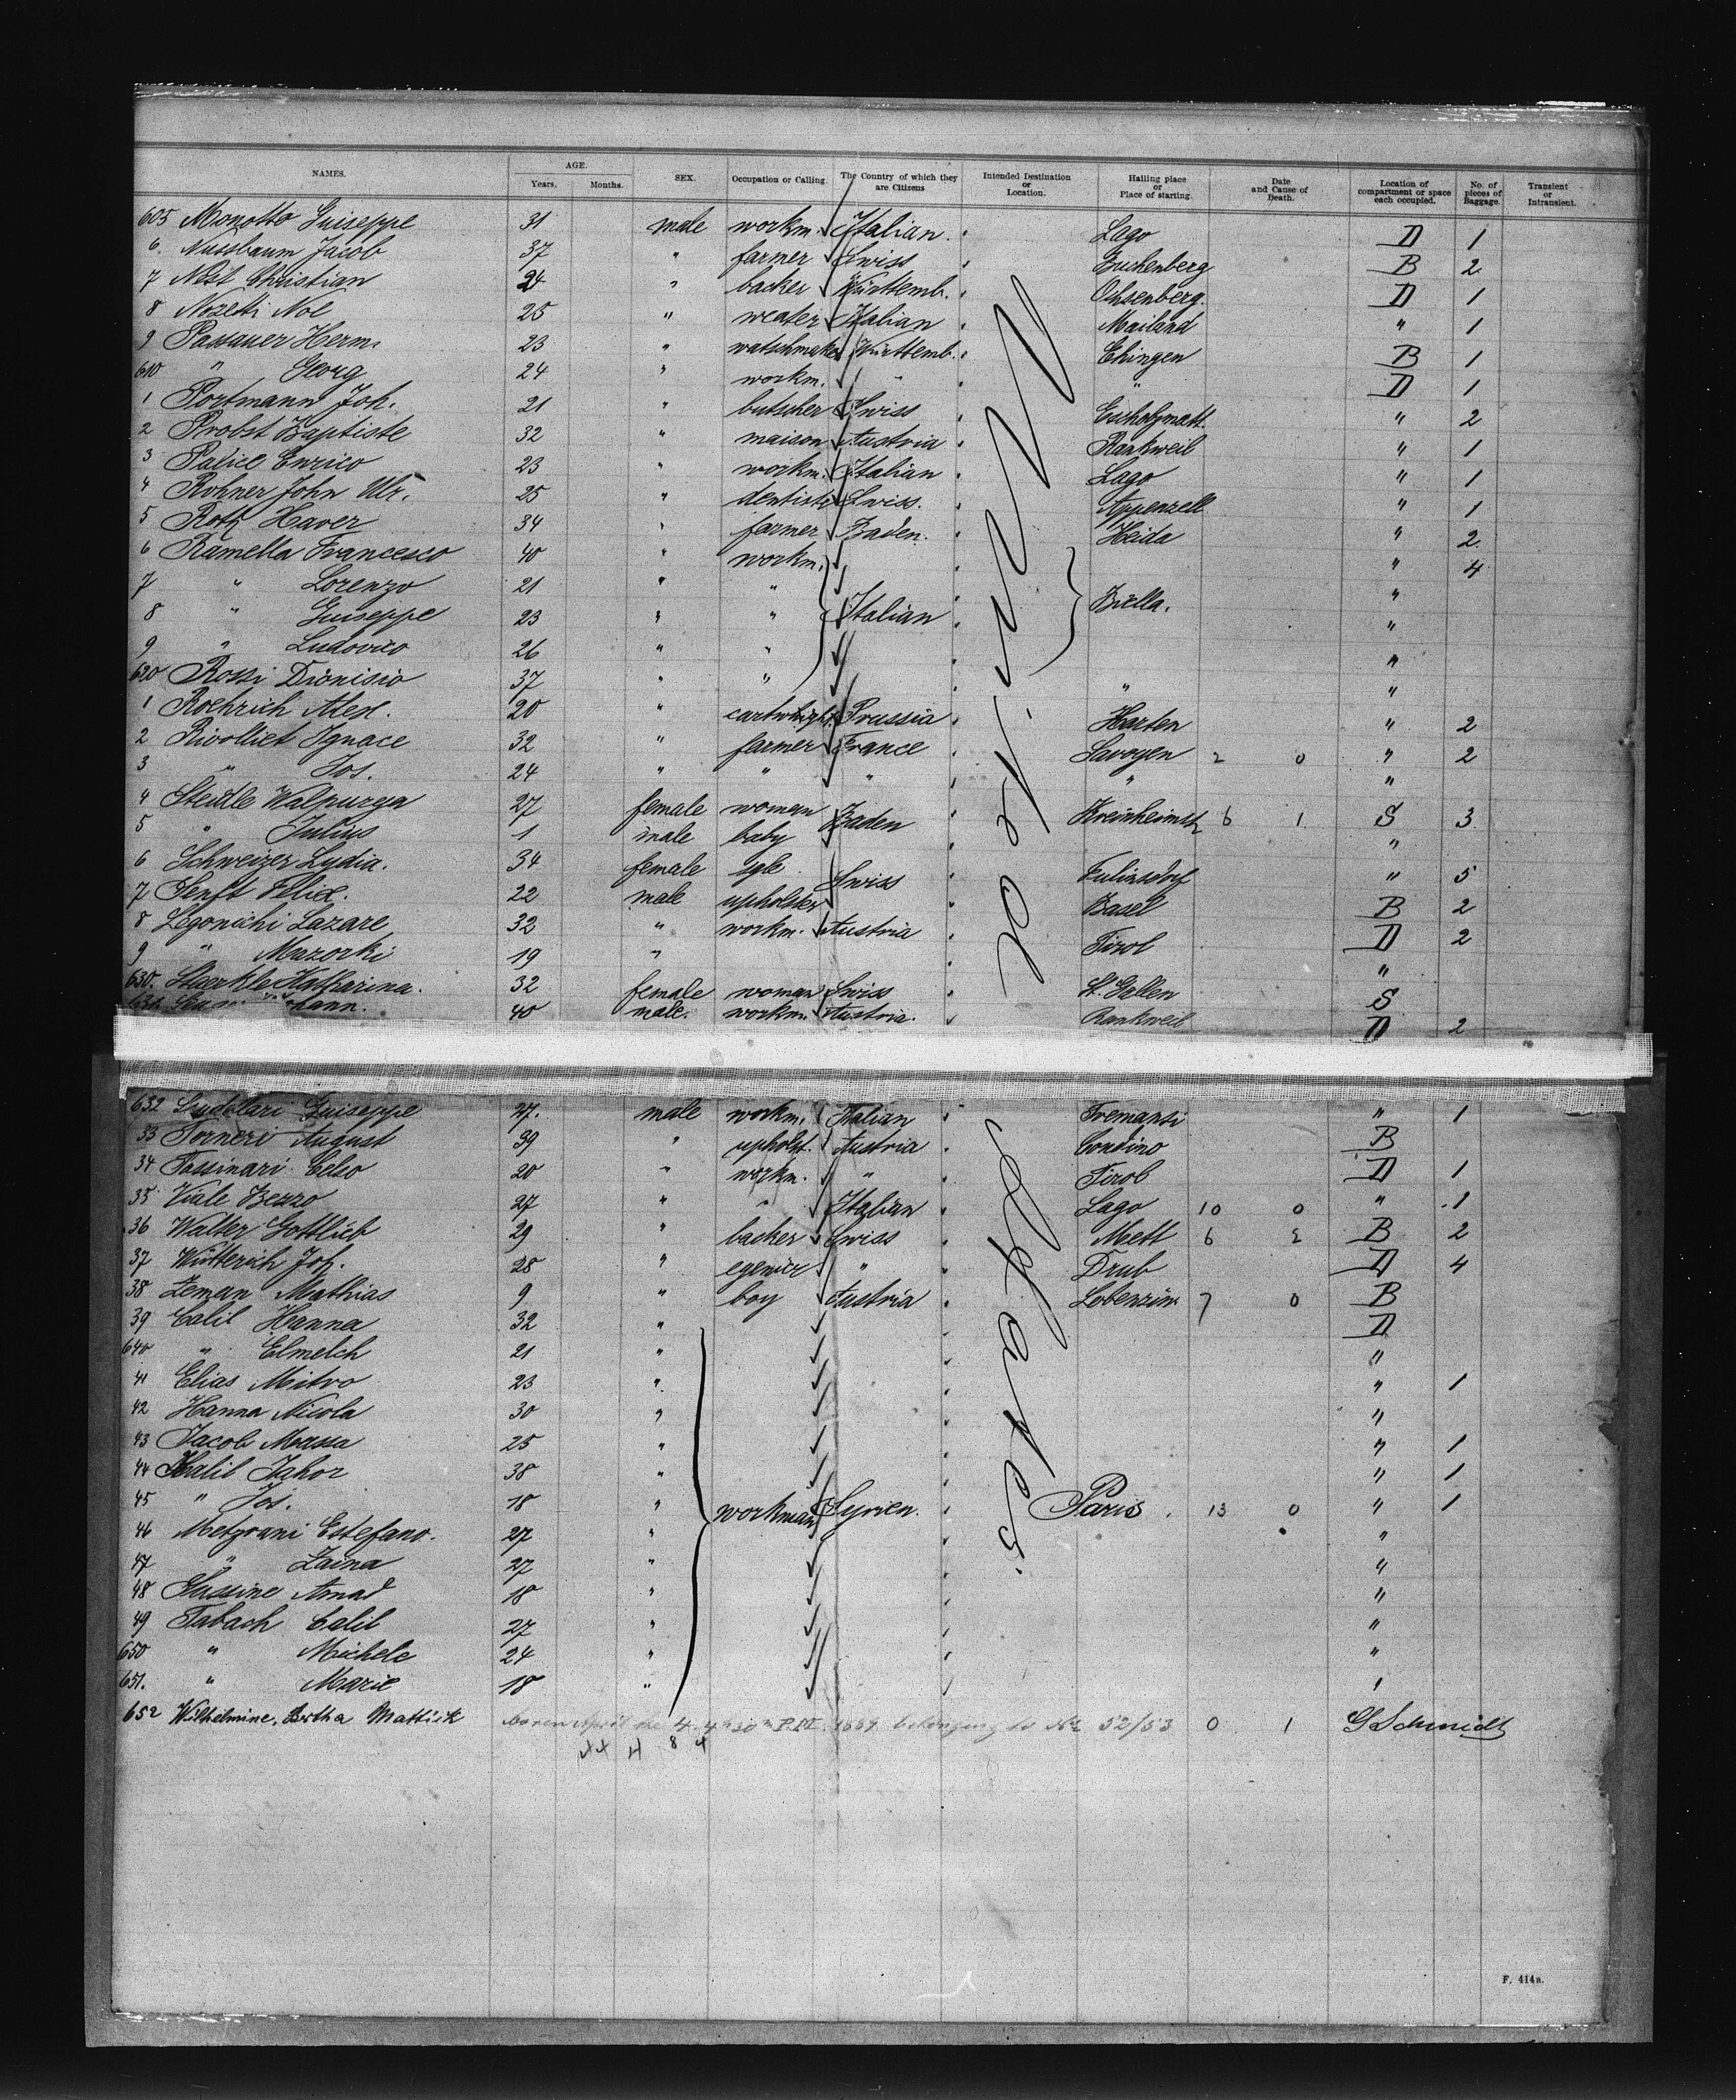 NAMES. AGE. Years. Months. SEX. Occupation or Calling. The Country of which they are Citizens Intended Destination or Location. Hailing place or Place of starting. Date and Cause of Death. Location of compartment or space each occupied. No. of pieces of Baggage. Transient or Intransient.
605 Monotto Guiseppe 31 male workm. Italian. Lago D 1
6. Nussbaum Jacob 37 " farmer Swiss Buchenberg B 2
7 Nest Christian 24 " backer Württemb. Ochsenberg. D 1
8 Nozetti Noe 25 " weater Italian Mailand " 1
9 Passauer Herm. 23 " watschmaker Württemb. Ehingen B 1
610 " Georg 24 " workm. " " D 1
1 Portmann Joh. 21 " butscher Swiss Escholzmatt. " 2
2 Probst Baptiste 32 " maison Austria Rankweil " 1
3 Palice Enrico 23 " workm. Italian Lago " 1
4 Rohner John Ulr. 25 " dentiste Swiss. Appenzell " 1
5 Roth Xaver 34 " farmer Baden. Heida " 2
6 Ramella Francesco 40 " workm. " 4
7 " Lorenzo 21 " " "
8 " Guiseppe 23 " " Italian Biella. "
9 " Ludovico 26 " " "
620 Rossi Dionisio 37 " " " "
1 Roehrich Alex. 20 " cartwright Prussia Harten " 2
2 Rivolliet Ignace 32 " farmer France Savoyen 2 0 " 2
3 " Jos. 24 " " " " "
4 Steidle Walpurga 27 female woman Baden 6 1 S 3
5 " Julius 1 male baby "
6 Schweizer Lydia. 34 female sgle Swiss Fulinsdorf " 5
7 Senft Felix. 22 male upholster Basel B 2
8 Segonichi Lazare 32 " workm. Austria Tirol D 2
9 " Mazorki 19 " "
630. Staerkle Katharina. 32 female woman Swiss St. Gallen S
40 male. workm. Austria. Rankweil D 2
632 Guiseppe 27. male workm. Italian Tremansi " 1
33 Torneri August 39 " upholst. Austria Condino B
34 Tossinari Celso 20 " workm. " Tirol D 1
35 Viale Bezzo 27 " " Italian Lago 10 0 " 1
36 Walter Gottlieb 29 " backer Swiss Mett 6 2 B 2
37 Wütterich Joh. 28 " " Drub D 4
38 Zeman Mathias 9 " boy Austria 7 0 B
39 Calil Hanna 32 " D
640 " Elmelch 21 " "
41 Elias Mitro 23 " " 1
42 Hanna Nicola 30 " "
43 Jacob Massa 25 " " 1
44 Halil Jahor 38 " " 1
45 " Jos. 18 " workman Syrien. Paris. 13 0 " 1
46 Metzrani Estefano. 27 " "
47 " Zaina 27 " "
48 Hussine Amad 18 " "
49 Tabach Calil 27 " "
650 " Michele 24 " "
651. " Marie 18 " "
652 Wilhelmine, Bertha Mattick boren April the 4. 4 h 30 m P.M. 1889 belonging to No 52/53 0 1 G Schmidt
44 H 8 4
F. 414a.